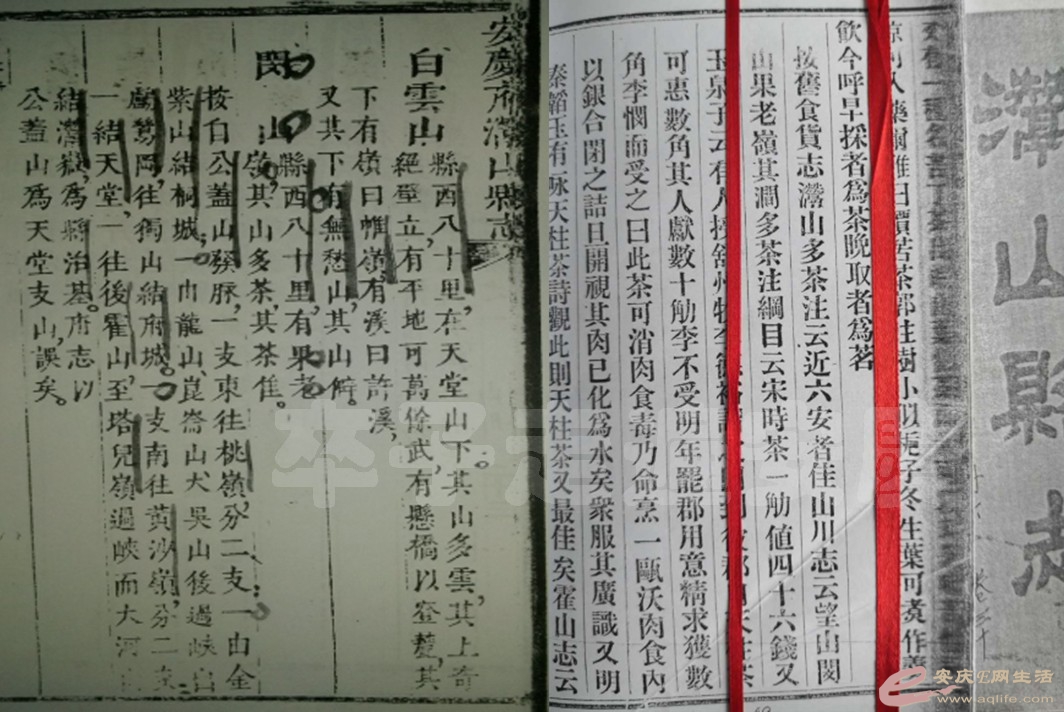 安慶府潛山縣志
白雲山 縣西八十里,在天堂山下。其山多雲,其上奇
絕壁立,有平地可萬餘武,有懸橋以登其
下有嶺曰帷嶺,有溪曰許溪,
又其下有無愁山,其山僻。
閔山 縣西八十里,有果老
嶺,其山多茶,其茶佳。
按白公蓋山發脈,一支東往桃嶺,分二支,一由金
紫山結桐城;一由龍山、崑崙山犬吳山後過峽
岡,往獨山結府城。一支南往黃沙嶺,分二支
一結天堂,一往後霍山至塔兒嶺過峽而大河
結潛嶽,爲縣治基。府志以
公蓋山爲天堂支山,誤矣。
潛山縣志
爾雅曰檟苦茶郭註樹小似梔子冬生葉可煑作
飲今呼早採者爲茶晚取者爲茗
按舊食貨志灊山多茶注云近六安者佳山川志云望山閔
山果老嶺其澗多茶注綱目云宋時茶一觔値四十六錢又
玉泉子云有人授舒州牧李德裕
可惠數角其人獻數十觔李不受明年罷郡用意精求獲數
角李憫而受之曰此茶可消肉食毒乃命烹一甌沃肉食內
以銀合閉之詰旦開視其肉已化爲水矣衆服其廣識又明
秦韜玉有詠天柱茶詩觀此則天柱茶又最佳矣霍山志云
安庆E网生活
www.aqlife.com